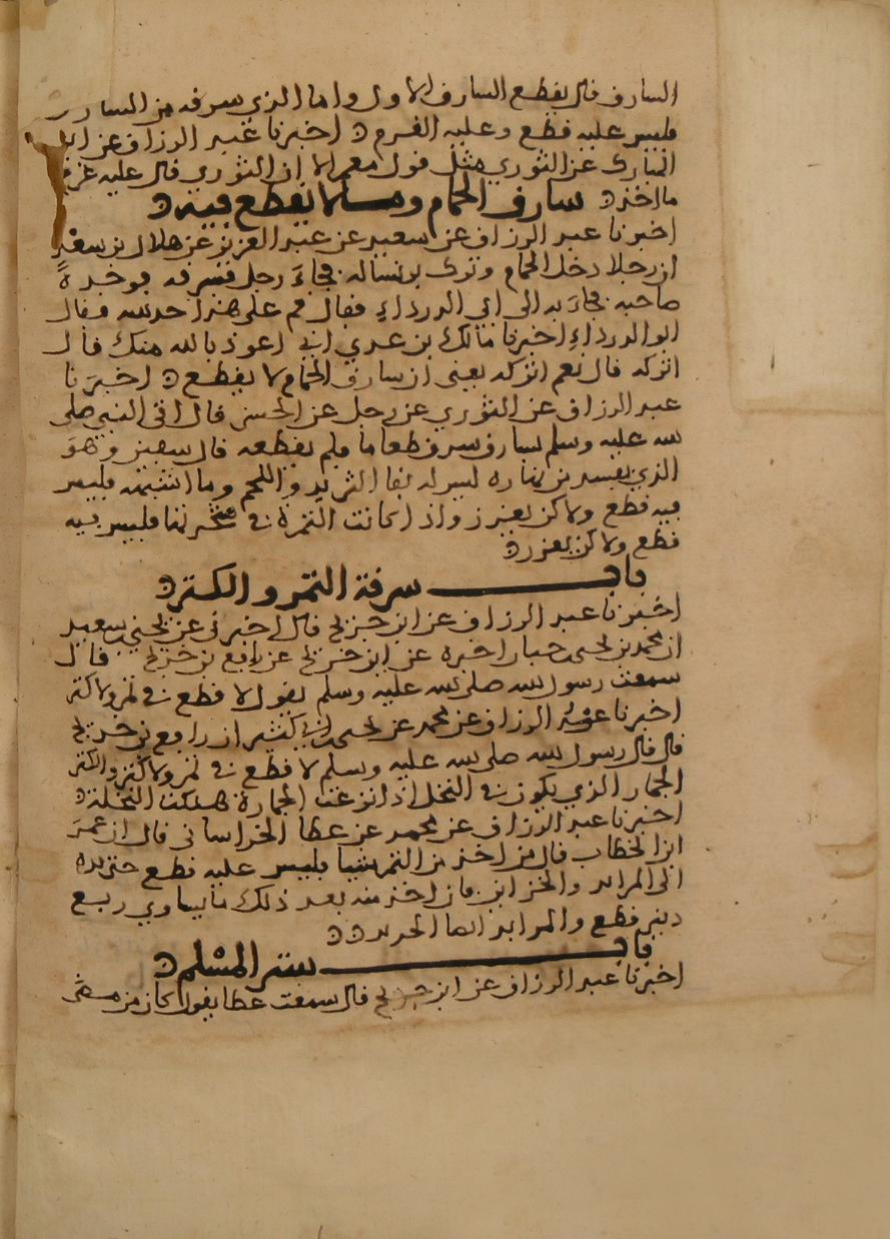 السارق قال يقطع السارق الاول واما الذي سرقه من السارق
فليس عليه قطع وعليه الغرم اخبرنا عبد الرزاق عن ابن
المبارك عن الثوري مثل قول معمر الا ان الثوري قال عليه غرم
ما اخذ سارق الحمام وما لا يقطع فيه
اخبرنا عبد الرزاق عن سعيد عن عبد العزيز عن هلال بن سعد
ان رجلا دخل الحمام وترك برنسا له فجاء رجل فسرقه فوجده
صاحبه فجاء به الى ابي الدرداء فقال اقم على هذا حد الله فقال
ابو الدرداء اخبرنا مالك بن عدي اني اعوذ بالله منك قال
اتركه قال نعم اتركه يعني ان سارق الحمام لا يقطع اخبرنا
عبد الرزاق عن الثوري عن رجل عن الحسن قال اتي النبي صلى
الله عليه وسلم بسارق سرق طعاما فلم يقطعه قال سفين وهو
الذي يفسد من نهاره ليس له بقا الثريد واللحم وما اشبهه فليس
فيه قطع ولاكن يعزر واذا كانت الثمرة في شجرتها فليس فيه
قطع ولاكن يعزر
باب سرقة الثمر والكثر
اخبرنا عبد الرزاق عن ابن جريج قال اخبرني عن يحيى بن سعيد
ان محمد بن يحيى بن حبان اخبره عن ابن خديج عن رافع بن خديج قال
سمعت رسول الله صلى الله عليه وسلم يقول لا قطع في ثمر ولا كثر
اخبرنا عبد الرزاق عن معمر عن يحيى بن ابي كثير ان رافع بن خديج
قال قال رسول الله صلى الله عليه وسلم لا قطع في ثمر ولا كثر والكثر
الجمار الذي يكون في النخل اذا نزعت الجمارة هلكت النخلة
اخبرنا عبد الرزاق عن معمر عن عطا الخراساني قال ان عمر
ابن الخطاب قال من اخذ من الثمر شيا فليس عليه قطع حتى يره
الى المرابد والجرائن فان اخذ منه بعد ذلك ما يساوي ربع
دينر قطع والمرابد ايضا الجرين
باب ستر المسلم
اخبرنا عبد الرزاق عن ابن جريج قال سمعت عطا يقول كان من مضى